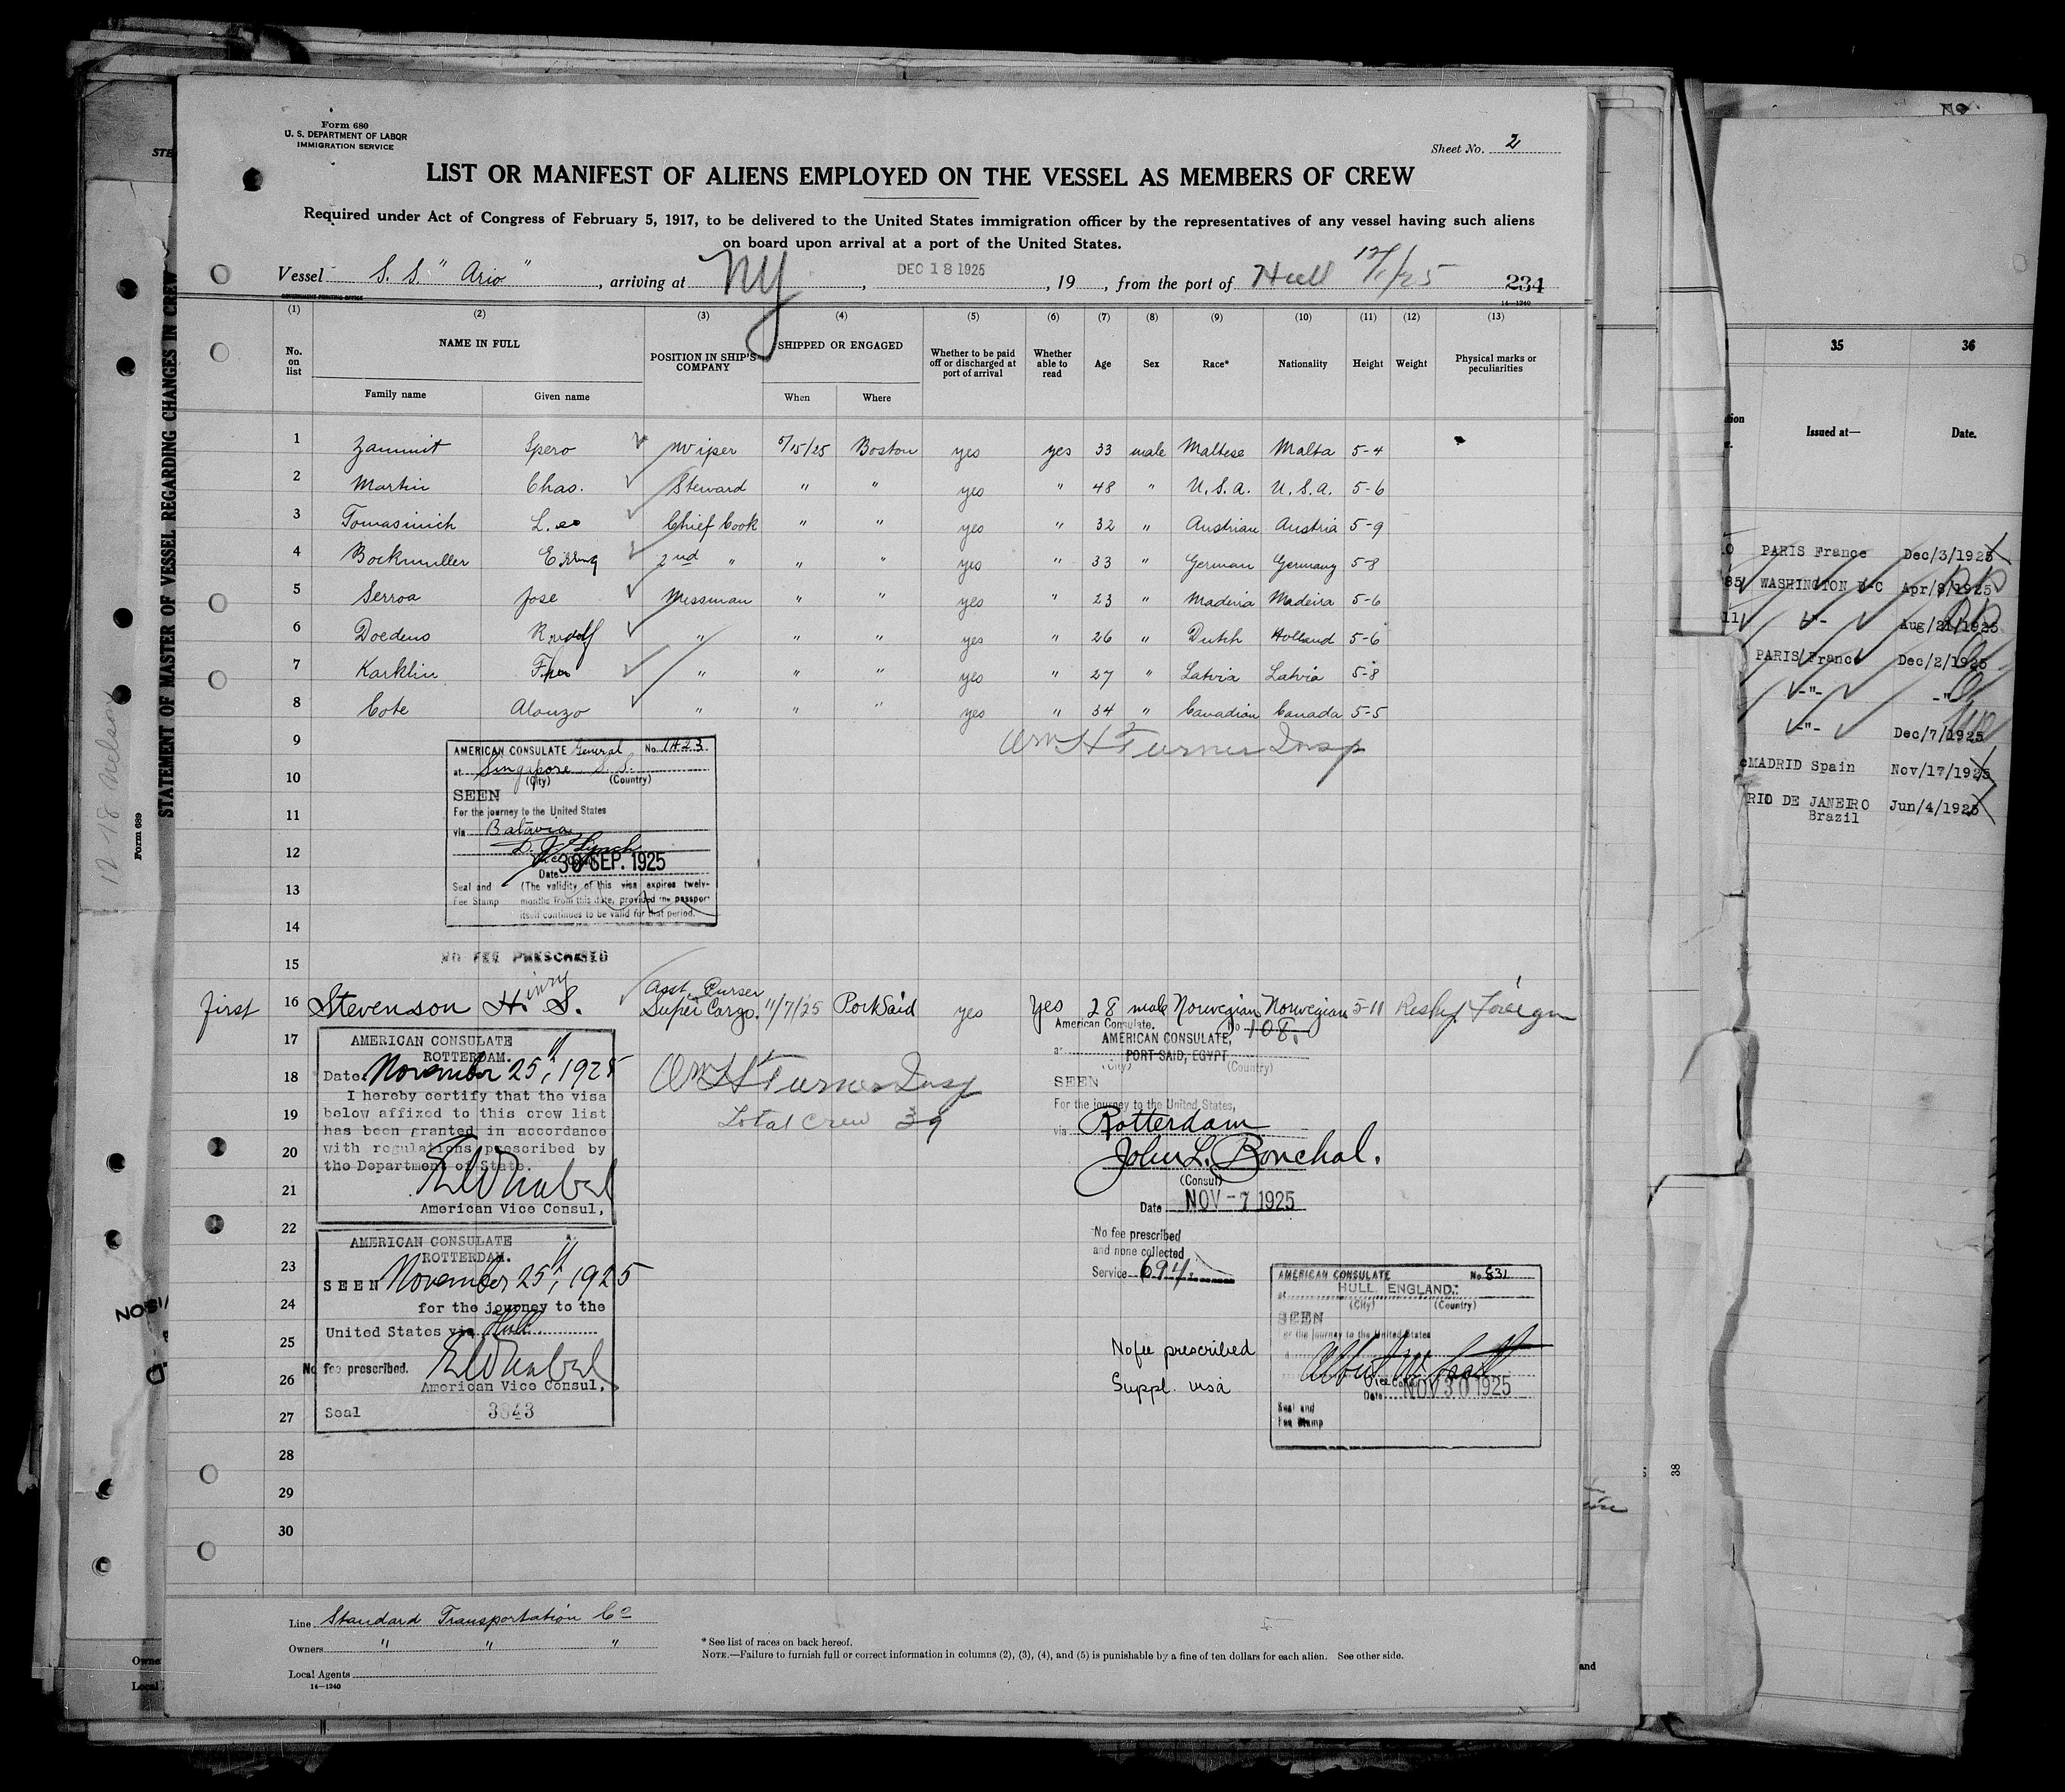 Form 680
U. S. DEPARTMENT OF LABOR
IMMIGRATION SERVICE
Sheet No. 2
LIST OR MANIFEST OF ALIENS EMPLOYED ON THE VESSEL AS MEMBERS OF CREW
Required under Act of Congress of February 5, 1917, to be delivered to the United States immigration officer by the representatives of any vessel having such aliens
on board upon arrival at a port of the United States.
Vessel S. S. " Ario ", arriving at NY, DEC 18 1925, 19 , from the port of Hull 12/1/25 234
GOVERNMENT PRINTING OFFICE 14—1240
(1) (2) (3) (4) (5) (6) (7) (8) (9) (10) (11) (12) (13)
No. on list NAME IN FULL POSITION IN SHIP'S COMPANY SHIPPED OR ENGAGED Whether to be paid off or discharged at port of arrival Whether able to read Age Sex Race* Nationality Height Weight Physical marks or peculiarities
Family name Given name When Where
1 Zammit Spero Wiper 5/15/25 Boston yes yes 33 male Maltese Malta 5-4
2 Martin Chas. Steward " " yes " 48 " U.S.A. U.S.A. 5-6
3 Tomasinich L. Chief Cook " " yes " 32 " Austrian Austria 5-9
4 Bockmuller 2nd " " " yes " 33 " German Germany 5-8
5 Serroa Jose Messman " " yes " 23 " Madeira Madeira 5-6
6 Doedens Rudolf " " " yes " 26 " Dutch Holland 5-6
7 Karklin " " " yes " 27 " Latvia Latvia 5-8
8 Cote Alonzo " " " yes " 34 " Canadian Canada 5-5
9 Wm H Turner Insp
10
11
12
13
14
15
AMERICAN CONSULATE General No. 1423
at Singapore S. S.
(City) (Country)
SEEN
For the journey to the United States
via Batavia
D. J. Lynch
Date 30 SEP. 1925
Seal and Fee Stamp (The validity of this visa expires twelve months from this date, provided the passport itself continues to be valid for that period.
NO FEE PRESCRIBED
first 16 Stevenson Henry S. Asst. Purser Super Cargo. 11/7/25 Port Said yes yes 28 male Norwegian Norwegian 5-11
17
18
19
20
21
22
23
24
25
26
27
28
29
30
AMERICAN CONSULATE
ROTTERDAM.
Date November 25", 1925
I hereby certify that the visa
below affixed to this crew list
has been granted in accordance
with regulations prescribed by
the Department of State.
American Vice Consul,
Wm H Turner Insp
Total Crew 39
American Consulate. No 108.
AMERICAN CONSULATE,
at PORT SAID, EGYPT
(City) (Country)
SEEN
For the journey to the United States,
via Rotterdam
John L. Bouchal.
(Consul)
Date NOV -7 1925
No fee prescribed
and none collected
Service 694.
AMERICAN CONSULATE
ROTTERDAM.
SEEN November 25", 1925
for the journey to the
United States via Hull
No fee prescribed.
American Vice Consul,
Seal 3843
No fee prescribed
Suppl. visa
AMERICAN CONSULATE No. 831
at HULL, ENGLAND.
(City) (Country)
SEEN
for the journey to the United States
Vice Consul
Date NOV 30 1925
Seal and
Fee Stamp
Line Standard Transportation Co
Owners " " "
Local Agents
14—1240
* See list of races on back hereof.
NOTE.—Failure to furnish full or correct information in columns (2), (3), (4), and (5) is punishable by a fine of ten dollars for each alien. See other side.
STATEMENT OF MASTER OF VESSEL REGARDING CHANGES IN CREW
Form 689
12-18 Nelson
35 36
Issued at— Date.
PARIS France Dec/3/1925
WASHINGTON D-C Apr/8/1925
-"- Aug/21/1925
PARIS France Dec/2/1925
-"- -"-
-"- Dec/7/1925
MADRID Spain Nov/17/1925
RIO DE JANEIRO Brazil Jun/4/1925
38
and